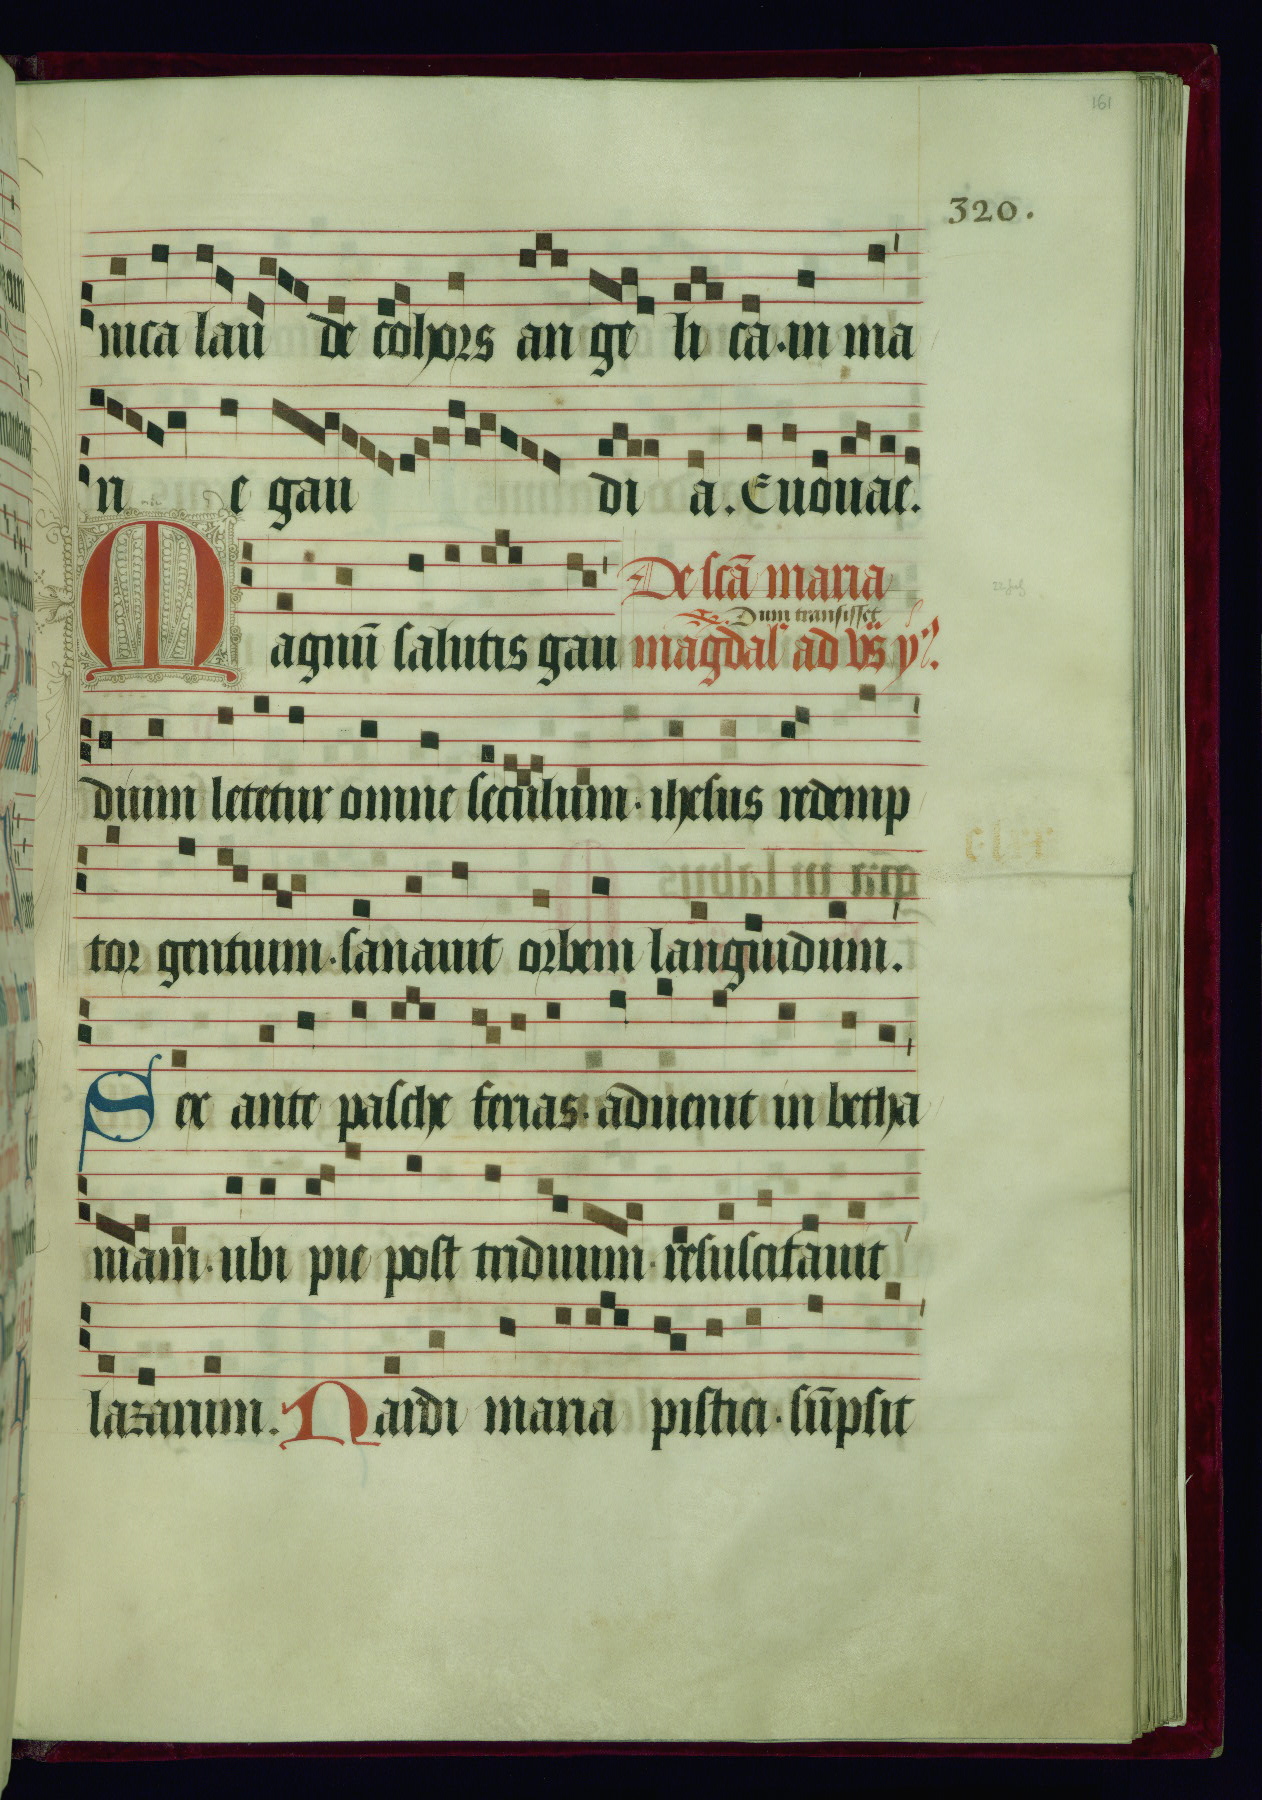 161
320.
nica lau de cohors an ge li ca. in ma
n e gau di a. Euouae.
De scā maria
℟. Dum transisset
Magnū salutis gau magdal' ad vs̄ ymꝰ.
dium letetur omne seculum. ihesus redemp
tor gentium. sanauit orbem languidum.
Sex ante pasche ferias. aduenit in betha
niam. ubi pie post triduum. resuscitauit
lazarum. Nardi maria pistici. sūpsit